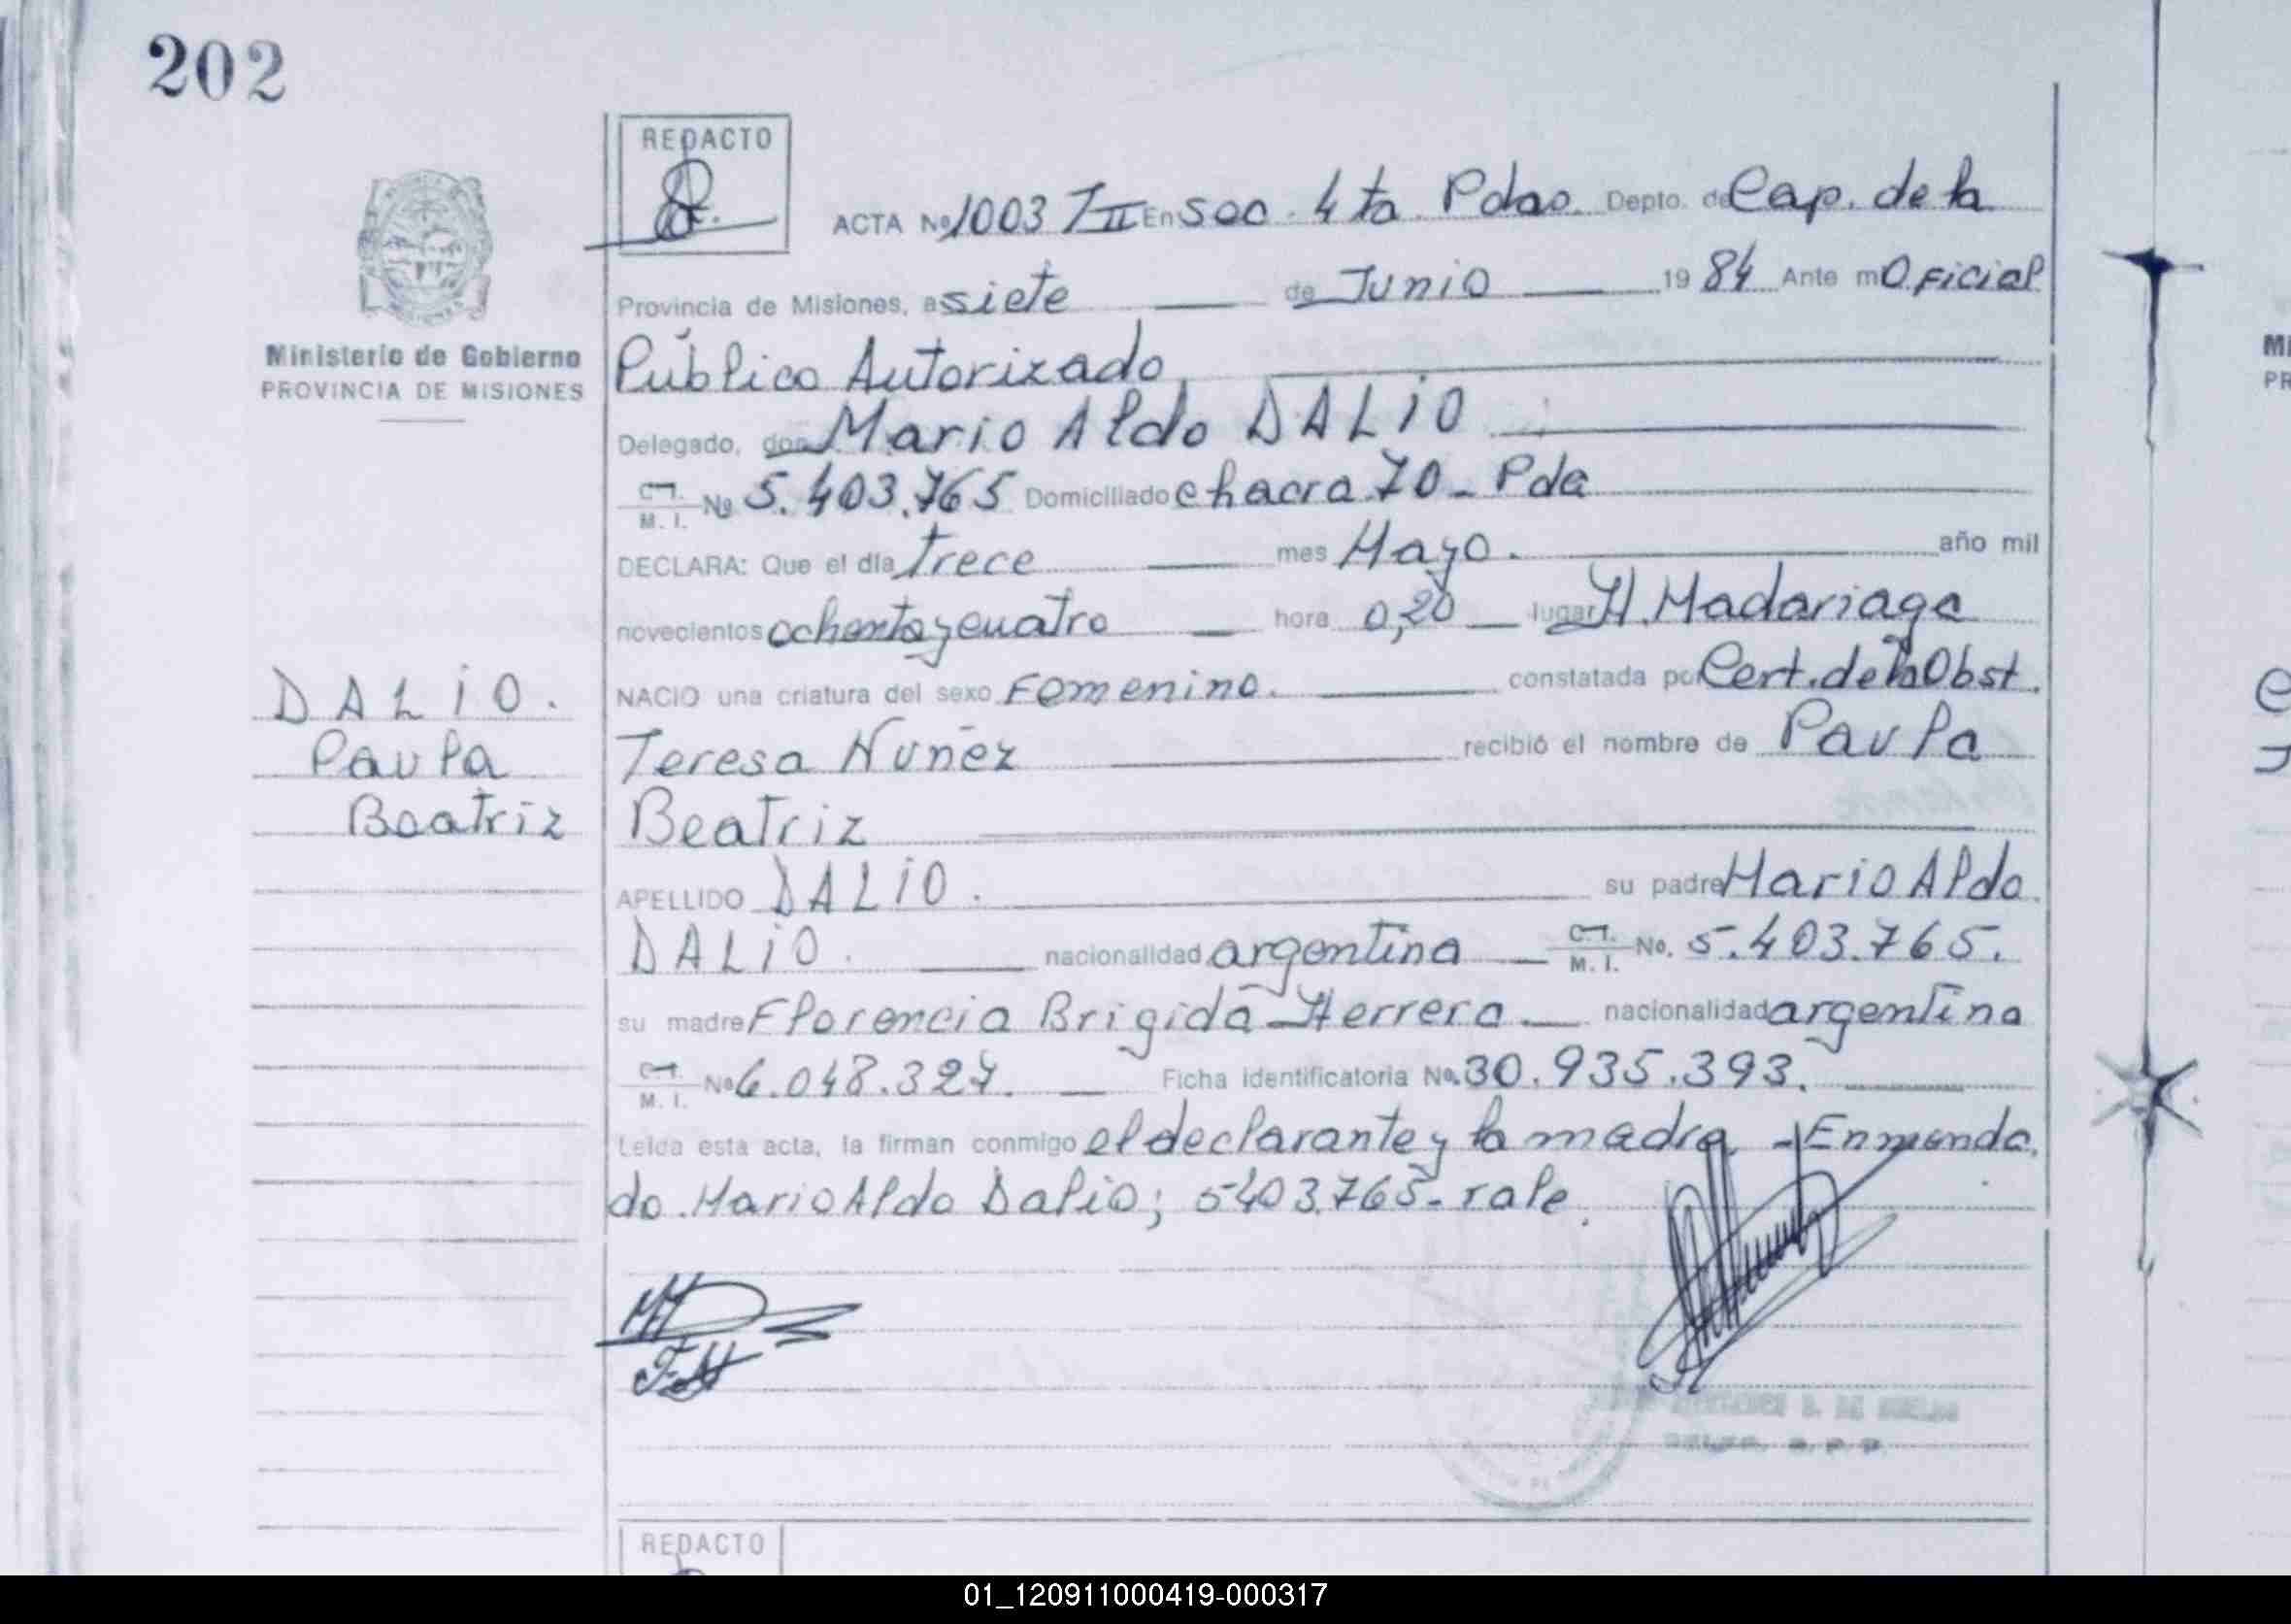 202
REDACTO
ACTA Nº 1003 T II En Sec. 4ta. Pdas. Depto. de Cap. de la
Provincia de Misiones, a siete de Junio 19 84 Ante mí Oficial
Ministerio de Gobierno
PROVINCIA DE MISIONES
Público Autorizado
Delegado, don Mario Aldo DALIO
C.I. M. I. Nº 5.403.765 Domiciliado chacra 70 - Pda
DECLARA: Que el día Trece mes Mayo. año mil
novecientos ochenta y cuatro hora 0,20 lugar H. Madariaga
NACIO una criatura del sexo Femenino. constatada por Cert. de la Obst.
DALIO.
Paula
Beatriz
Teresa Nuñez recibió el nombre de Paula
Beatriz
APELLIDO DALIO. su padre Mario Aldo
DALIO. nacionalidad argentina C.I. M. I. No. 5.403.765.
su madre Florencia Brigida Herrera nacionalidad argentina
C.I. M. I. Nº 6.048.327. Ficha identificatoria No. 30.935.393.
Leída esta acta, la firman conmigo el declarante y la madre - Enmenda
do. Mario Aldo Dalio; 5403.765 - vale.
REDACTO
01_120911000419-000317